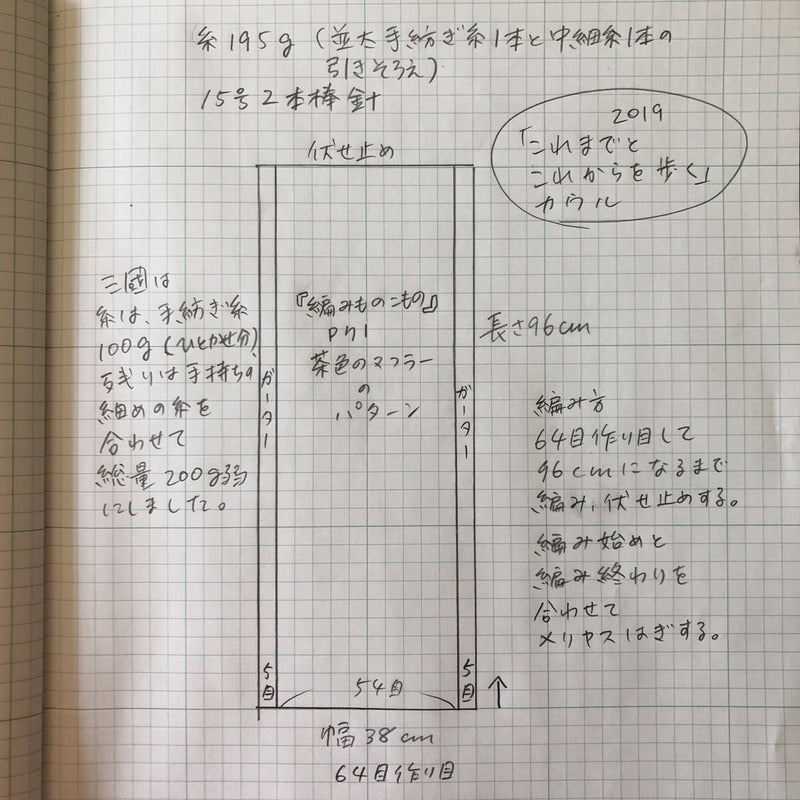 糸195g（並太手紡ぎ糸1本と中細糸1本の
引きそろえ）
15号2本棒針
2019
「これまでと
これからを歩く」
カウル
伏せ止め
三國は
糸は、手紡ぎ糸
100g（ひとかせ分）
残りは手持ちの
細めの糸を
合わせて
総量200g弱
にしました。
ガーター
『編みものこもの』
P71
茶色のマフラー
の
パターン
ガーター
長さ96cm
編み方
64目作り目して
96cmになるまで
編み、伏せ止めする。
編み始めと
編み終わりを
合わせて
メリヤスはぎする。
5目
54目
5目
↑
幅38cm
64目作り目